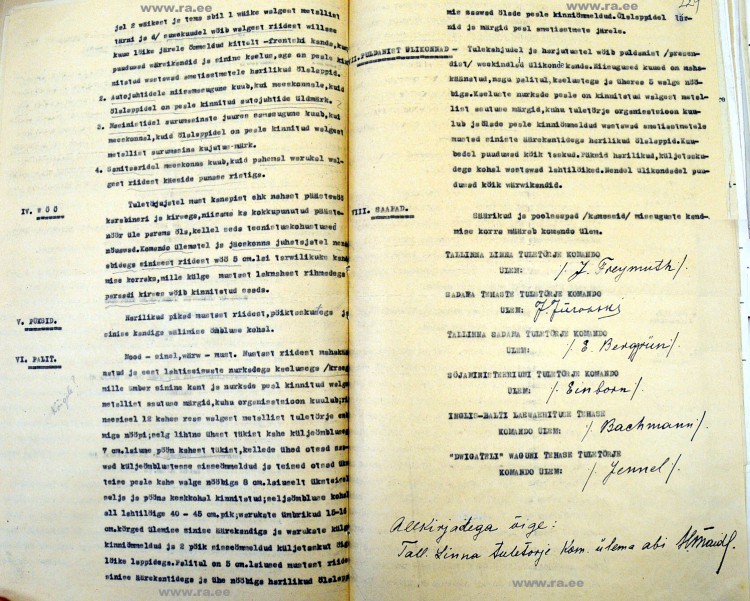 www.ra.ee
www.ra.ee
jel 2 väikest ja tema abil 1 väike walgest metallist
tärni ja d/ ametkuudel võib walgest riidest
kuue lõike järele õmmeldud kittelt - frentshi kanda, kuid
puuduvad wärwikandid ja sinine kaelus, ega on peale kin
nitatud wastawad ametisetmete harilikud õlalappid.
2. Autojuhtidele niisamasugune kuub, kui meeskonnale, kuid
õlalappidel on peale kinnitud autojuhtide üldmärk.
3. Masinistidel aurumasinate juures samasugune kuub, kui
meeskonnal, kuid õlalappidel on peale kinnitud walgest
metallist aurumasina kujutus-märk.
4. Sanitaaridel meeskonna kuub, kuid pahemal warukal wal-
gest riidest käesida punase ristiga.
IV. WÖÖ
Tuletõrjujatel must kanepist ehk nahast päästewöö
karabineri ja kirwega, niisama ka kokkupunutud pääste-
nöör üle parema õla, kellel seda teenistuskohustused
nõuawad. Komando ülematel ja jäoskonna juhatajatel
abidega sinisest riidest wöö 5 cm. lai terwilikuks kand-
mise korraks, mille külge mustast laknahast rihmadega
paraadi kirwes wõib kinnitatud saada.
V. PÜKSID.
Harilikud pikad mustast riidest, põiktaskutega ja
sinise kandiga wälimise õmbluse kohal.
VI. PALIT.
Mood - sinel, wärw - must. Mustast riidest mahakään
natud ja eest lahtiseiswate nurkadega kaelusega /
mille ümber sinine kant ja nurkade peal kinnitud walgest
metallist asutuse märgid, kuhu organisatsioon kuulub; rin
naesisel 12 kahes reas walgest metallist tuletõrje
miga nööpi; selg lihtne ühest tükist kahe küljeõmblusega
7 cm. laiune pöön kahest tükist, kellede ühed otsad
wad küljeõmblustesse sisseõmmeldud ja teised otsad üks
teise peale kahe walge nööbiga 8 cm. laiuselt üksteisel
selja ja pööna keskkohal kinnitatud; seljaõmbluse kohal
all lahtilõige 40 - 45 cm. pik; warukate ümbrikud 15-16
cm. kõrged ülemise sinise äärekandiga ja warukate külge
kinniõmmeldud ja 2 põik sisseõmmeldud küljetaskut
lõike lappidega. Palitul on 5 cm. laiused mustast riidest
sinise äärekantidega ja ühe nööbiga harilikud õlalappid
mis saawad õlade peale kinniõmmeldud. Õlalappidel tär-
nid ja märgid peal ametisatmete järele.
VII. PULDANIST ÜLIKONNAD - Tulekahjudel ja harjutustel wõib puldanist /presen-
dist/ weekindlaid ülikondi kanda. Niisugused kuued on maha-
käänatud, nagu palitul, kaelustega ja üheres 5 walge nöö-
biga. Kaeluste nurkade peale on kinnitatud walgest metal-
list asutuse märgid, kuhu tuletõrje organisatsioon kuu-
lub ja õlade peale kinniõmmeldud wastawad ametisatmetele
mustad siniste äärekantidega harilikud õlalappid. Kuu-
bedel puuduwad kõik taskud. Püksid harilikud, küljetasku-
dega kohal wastawad lahtilõiked. Nendel ülikondadel puu-
duwad kõik wärwikandid.
VIII. SAAPAD.
Säärikud ja poolsaapad /kamasid/ missuguste kand-
mise korra määrab komando ülem.
TALLINNA LINNA TULETÕRJE KOMANDO
ÜLEM: /J. Freymuth/.
SADAMA TEHASTE TULETÕRJE KOMANDO
ÜLEM:
TALLINNA SADAMA TULETÕRJE KOMANDO
ÜLEM: /E. Bergrün/.
SÕJAMINISTERIUMI TULETÕRJE KOMANDO
ÜLEM: /Einborn/.
INGLIS-BALTI LAEWAEHITUSE TEHASE
KOMANDO ÜLEM: /. Bachmann/.
"DWIGATELI" WAGUNI TEHASE TULETÕRJE
KOMANDO ÜLEM: /. Jennel/.
Allkirjadega õige:
Tall. Linna Tuletõrje Kom. ülema abi
www.ra.ee
www.ra.ee